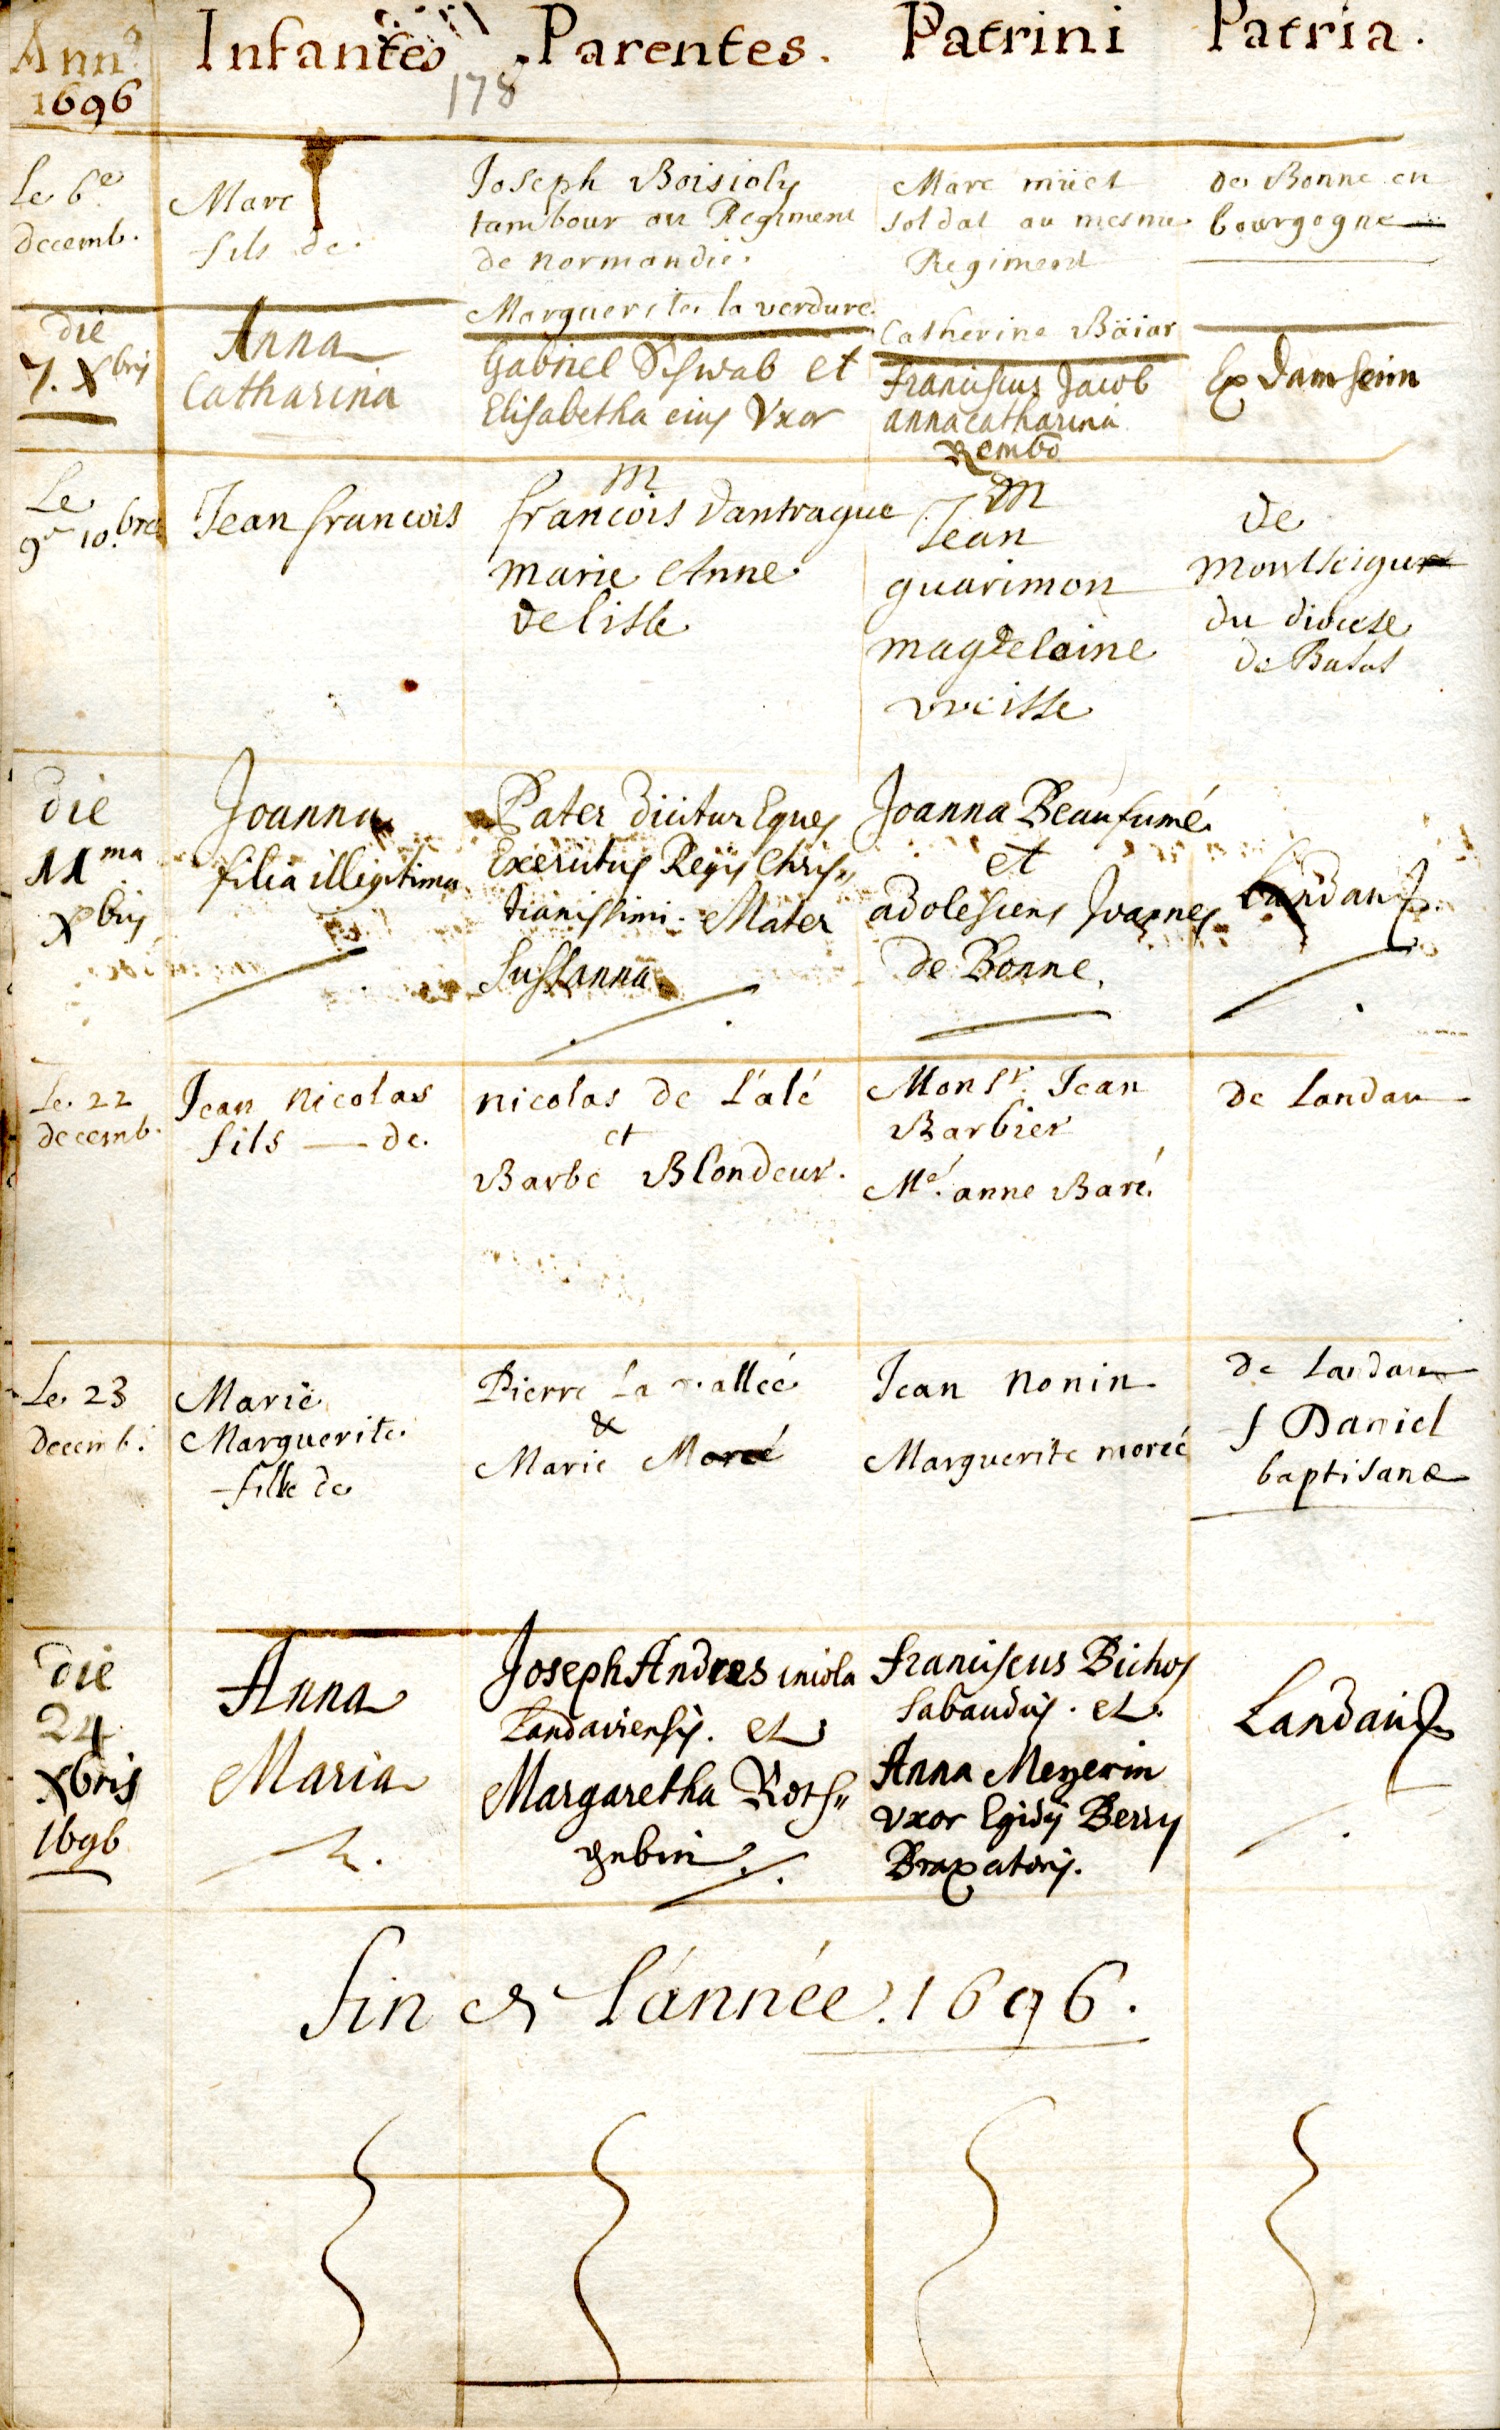 Ann.o Infantes Parentes. Patrini Patria.
1696
178
Le 6e.
decemb.
Marc
fils de
Joseph Boisioly
tambour au Regiment
de normandie.
Marguerite la verdure
Marc müet
soldat au mesme
Regiment
Catherine Bäiar
de Bonne en
bourgogne
die
7. Xbris
Anna
Catharina
Gabriel Schwab et
Elisabetha eius Vxor
Franciscus Jacob
anna catharina
Rembo
Ex Damheim
Le
9e 10.bre
Jean francois
m
francois Dantrague
marie Anne
delisle
m
Jean
guarimon
magdelaine
vveisse
de
montsegur
du diocese
de Basas
die
11ma
Xbris
Joanna
filia illigitima
Pater dicitur Eques
Exercitus Regis Chris"
tianissimi. Mater
Sussanna
Joanna Beaufumé
et
adolescens Joannes
de Bonne.
Landau
Le 22
decemb.
Jean Nicolas
fils — de.
nicolas de L'alé
et
Barbe Blondeur.
Monsr. Jean
Barbier
Me. anne Baré.
de Landau
Le 23
decemb.
Marie
Marguerite
fille de
Pierre La vallée
&
Marie Moreé
Jean nonin
Marguerite moreé
de Landau
f Daniel
baptisane
die
24
Xbris
1696
Anna
Maria
Joseph Andres incola
Landaviensis. et
Margaretha Roth"
gnbin
Franciscus Bichos
Sabaudus. et
Anna Meyerin
vxor Egidij Berry
Braxatoris.
Landau
fin de L'année. 1696.